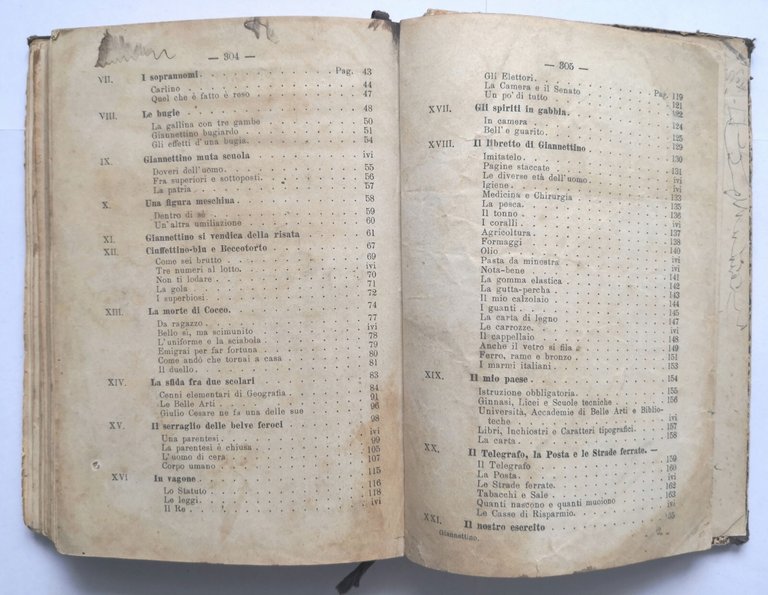 — 304 —
VII. I soprannomi . . . . . . . . Pag. 43
Carlino . . . . . . . . 44
Quel che è fatto è reso . . . . . . . . 47
VIII. Le bugie . . . . . . . . 48
La gallina con tre gambe . . . . . . . . 50
Giannettino bugiardo . . . . . . . . 51
Gli effetti d'una bugia. . . . . . . . 54
IX. Giannettino muta scuola . . . . . . . . ivi
Doveri dell'uomo. . . . . . . . 55
Fra superiori e sottoposti. . . . . . . . 56
La patria. . . . . . . . 57
X. Una figura meschina . . . . . . . . 58
Dentro di sè . . . . . . . . 59
Un'altra umiliazione . . . . . . . . 60
XI. Giannettino si vendica della risata . . . . . . . . 61
XII. Ciuffettino-blu e Beccotorto . . . . . . . . 67
Come sei brutto . . . . . . . . 69
Tre numeri al lotto. . . . . . . . ivi
Non ti lodare . . . . . . . . 70
La gola . . . . . . . . 71
I superbiosi . . . . . . . . 72
XIII. La morte di Cocco. . . . . . . . 74
Da ragazzo . . . . . . . . 77
Bello sì, ma scimunito . . . . . . . . ivi
L'uniforme e la sciabola . . . . . . . . 78
Emigrai per far fortuna . . . . . . . . 79
Come andò che tornai a casa . . . . . . . . 80
Il duello. . . . . . . . 81
XIV. La sfida fra due scolari . . . . . . . . 83
Cenni elementari di Geografia . . . . . . . . 84
Le Belle Arti . . . . . . . . 91
Giulio Cesare ne fa una delle sue . . . . . . . . 96
XV. Il serraglio delle belve feroci . . . . . . . . 98
Una parentesi . . . . . . . . ivi
La parentesi è chiusa . . . . . . . . 99
L'uomo di cera . . . . . . . . 105
Corpo umano . . . . . . . . 107
XVI In vagone . . . . . . . . 115
Lo Statuto . . . . . . . . 116
Le leggi . . . . . . . . 118
Il Re . . . . . . . . ivi
— 305 —
Gli Elettori. . . . . . . .
La Camera e il Senato . . . . . . . . Pag. 119
Un po' di tutto . . . . . . . . 121
XVII. Gli spiriti in gabbia. . . . . . . . 122
In camera . . . . . . . . 124
Bell'e guarito. . . . . . . . 125
XVIII. Il libretto di Giannettino . . . . . . . . 129
Imitatelo . . . . . . . . 130
Pagine staccate . . . . . . . . 131
Le diverse età dell'uomo . . . . . . . . ivi
Igiene . . . . . . . . ivi
Medicina e Chirurgia . . . . . . . . 133
La pesca. . . . . . . . 135
Il tonno . . . . . . . . 136
I coralli . . . . . . . . ivi
Agricoltura . . . . . . . . 137
Formaggi . . . . . . . . 138
Olio . . . . . . . . 140
Pasta da minestra . . . . . . . . ivi
Nota-bene . . . . . . . . ivi
La gomma elastica . . . . . . . . 141
La gutta-percha . . . . . . . . 142
Il mio calzolaio . . . . . . . . 143
I guanti . . . . . . . . 144
La carta di legno . . . . . . . . 145
Le carrozze. . . . . . . . 147
Il cappellaio . . . . . . . . ivi
Anche il vetro si fila . . . . . . . . 149
Ferro, rame e bronzo . . . . . . . . 151
I marmi italiani . . . . . . . . 153
XIX. Il mio paese . . . . . . . . 154
Istruzione obbligatoria. . . . . . . . 155
Ginnasi, Licei e Scuole tecniche . . . . . . . . 156
Università, Accademie di Belle Arti e Biblio-
teche . . . . . . . . ivi
Libri, Inchiostri e Caratteri tipografici. . . . . . . . 157
La carta . . . . . . . . 158
XX. Il Telegrafo, la Posta e le Strade ferrate. —
Il Telegrafo . . . . . . . . 159
La Posta. . . . . . . . 160
Le Strade ferrate. . . . . . . . ivi
Tabacchi e Sale . . . . . . . . 162
Quanti nascono e quanti muoiono . . . . . . . . 163
Le Casse di Risparmio. . . . . . . . ivi
XXI. Il nostro esercito . . . . . . . .
Giannettino.